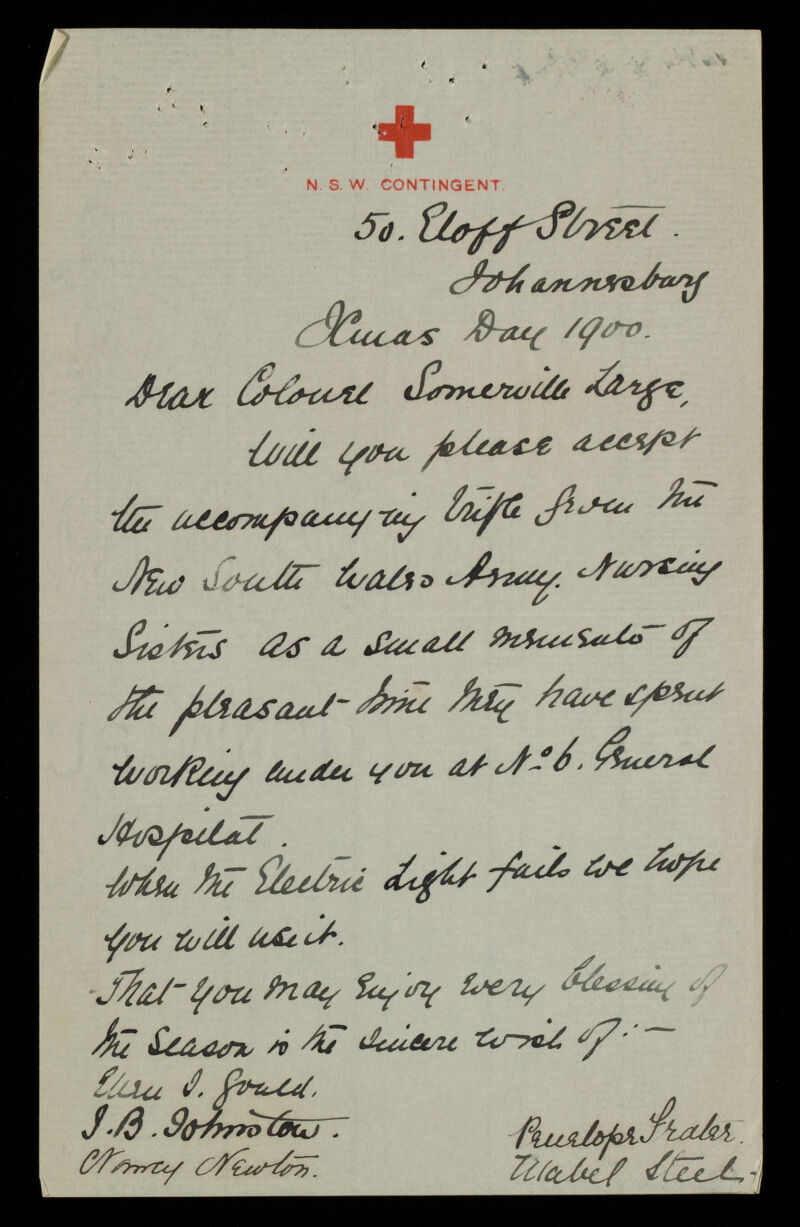 N. S. W. CONTINGENT.
50. Eloff Street.
Johannesburg
Xmas Day 1900.
Dear Colonel Somerville Large,
Will you please accept
the accompanying trifle from the
New South Wales Army. Nursing
Sisters as a small memento of
the pleasant time they have spent
working under you at No. 6. General
Hospital.
When the Electric Light fails we hope
you will use it.
That you may enjoy every blessing of
the Season is the sincere wish of :-
Ellen J. Gould.
J. B. Johnston.
Penelope Frater.
Nancy Newton.
Mabel Steel.